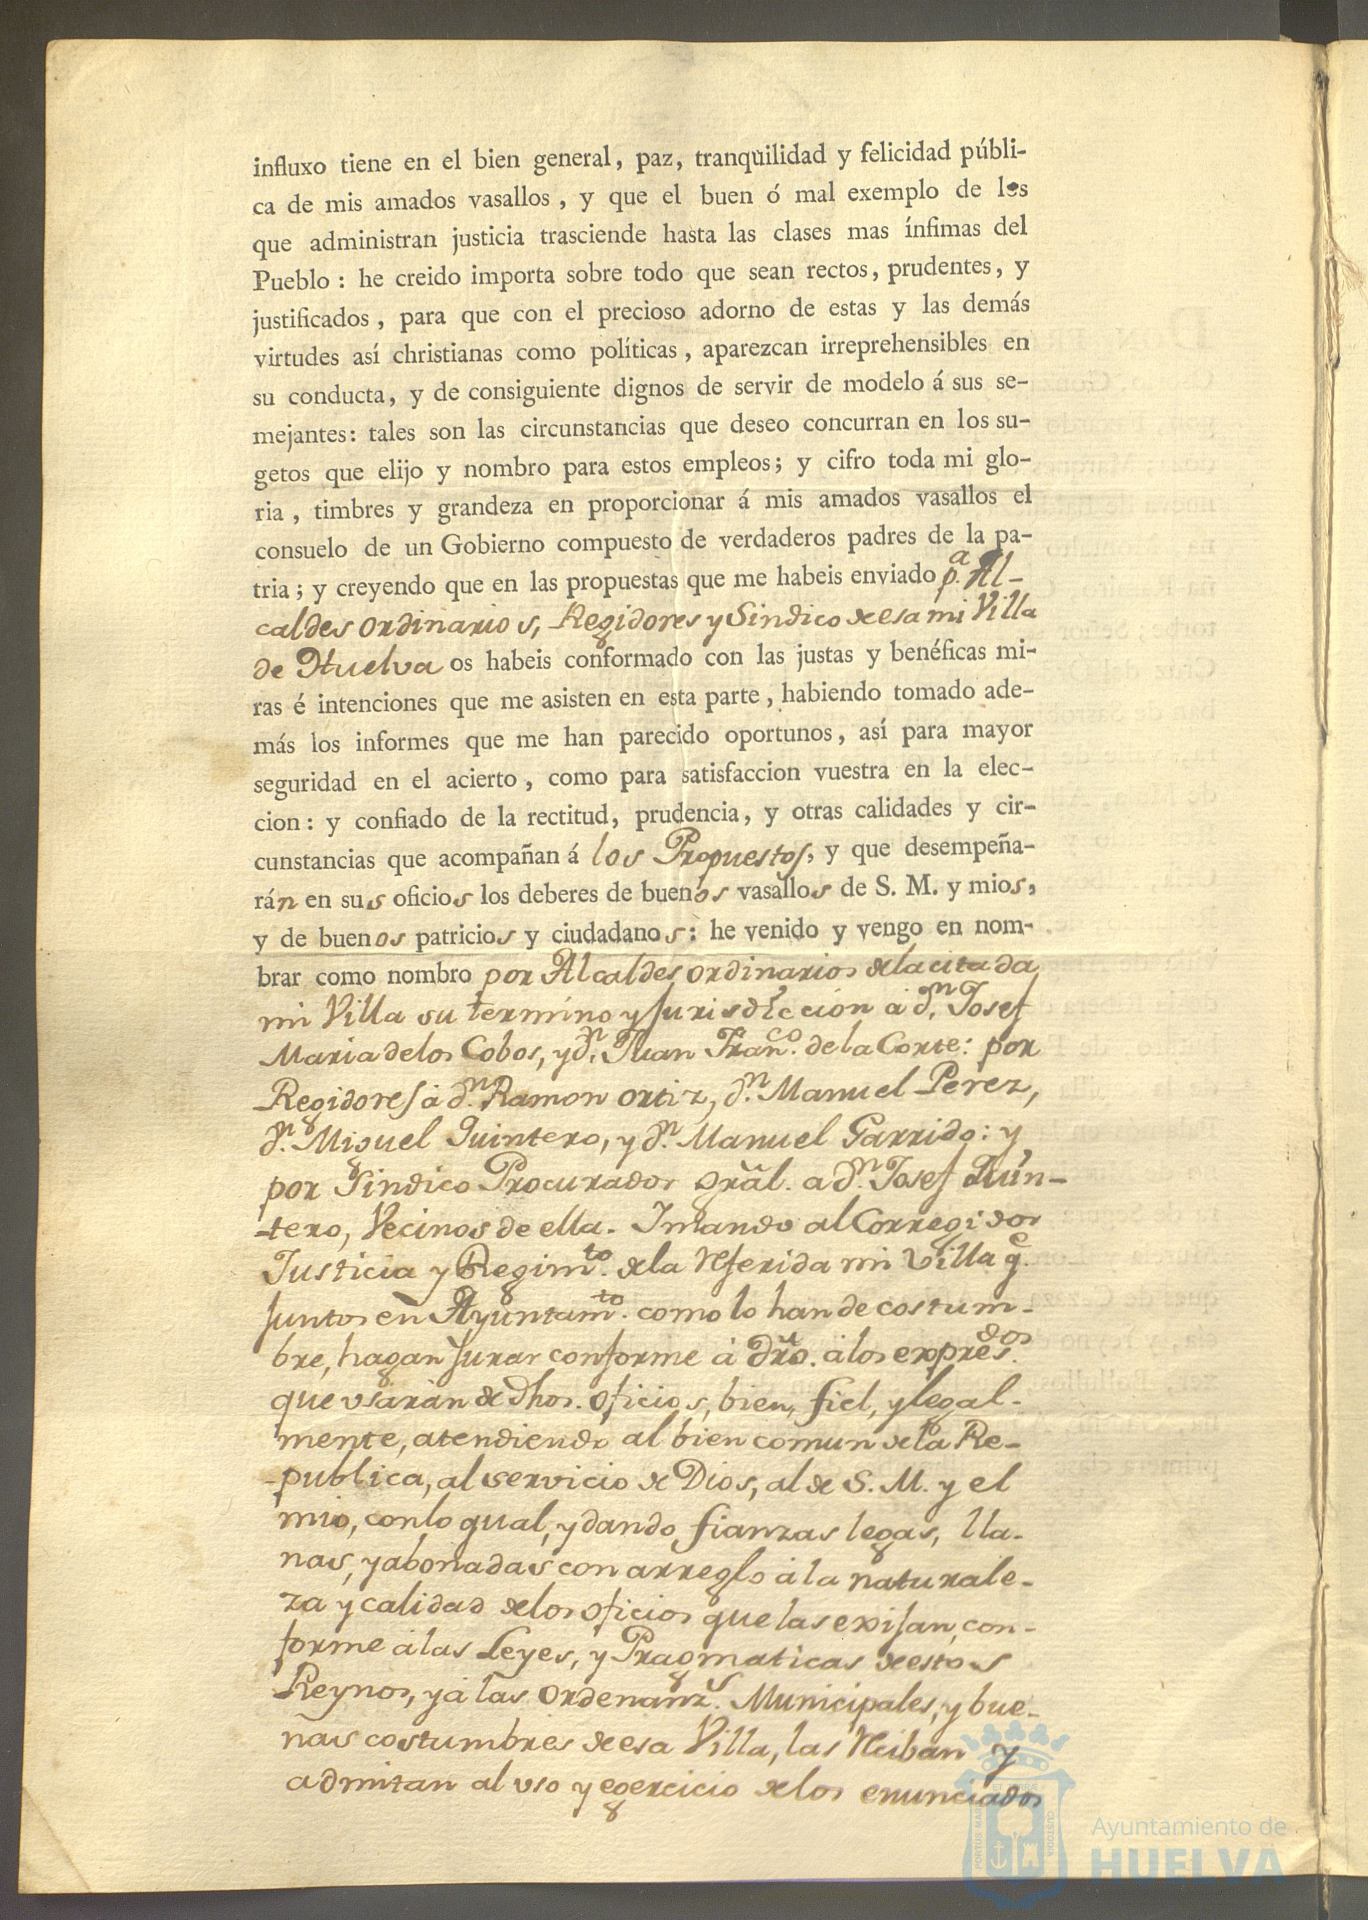 influxo tiene en el bien general, paz, tranqüilidad y felicidad públi-
ca de mis amados vasallos, y que el buen ó mal exemplo de los
que administran justicia trasciende hasta las clases mas ínfimas del
Pueblo: he creido importa sobre todo que sean rectos, prudentes, y
justificados, para que con el precioso adorno de estas y las demás
virtudes así christianas como políticas, aparezcan irreprehensibles en
su conducta, y de consiguiente dignos de servir de modelo á sus se-
mejantes: tales son las circunstancias que deseo concurran en los su-
getos que elijo y nombro para estos empleos; y cifro toda mi glo-
ria, timbres y grandeza en proporcionar á mis amados vasallos el
consuelo de un Gobierno compuesto de verdaderos padres de la pa-
tria; y creyendo que en las propuestas que me habeis enviado p.ª Al-
caldes ordinarios, Regidores y Sindico de esa mi Villa
de Huelva os habeis conformado con las justas y benéficas mi-
ras é intenciones que me asisten en esta parte, habiendo tomado ade-
más los informes que me han parecido oportunos, así para mayor
seguridad en el acierto, como para satisfaccion vuestra en la elec-
cion: y confiado de la rectitud, prudencia, y otras calidades y cir-
cunstancias que acompañan á los Propuestos, y que desempeña-
rán en sus oficios los deberes de buenos vasallos de S. M. y mios,
y de buenos patricios y ciudadanos: he venido y vengo en nom-
brar como nombro por Alcaldes ordinarios de la citada
mi Villa su termino y Jurisdiccion à d.ⁿ Josef
Maria de los Cobos, y d.ⁿ Juan Fran.ᶜᵒ de la Corte: por
Regidores à d.ⁿ Ramon Ortiz, d.ⁿ Manuel Perez,
d.ⁿ Miguel Quintero, y d.ⁿ Manuel Garrido: y
por Sindico Procurador Grãl. a d.ⁿ Josef Quin-
-tero, Vecinos de ella. Y mando al Corregidor
Justicia y Regim.ᵗᵒ de la referida mi Villa q.ᵉ
Juntos en Ayuntam.ᵗᵒ como lo han de costum-
bre, hagan Jurar conforme à dr̃o. à los expres.ᵈᵒˢ
que usaràn de dhos. oficios, bien, fiel, y legal-
mente, atendiendo al bien comun de la Re-
-publica, al servicio de Dios, al de S. M. y el
mio, con lo qual, y dando fianzas legas, lla-
nas, y abonadas con arreglo à la naturale-
za y calidad de los oficios que las exijan, con-
forme à las Leyes, y Pragmaticas de estos
Reynos, y à las Ordenanz.ˢ Municipales, y bue-
nas costumbres de esa Villa, las reciban y
admitan al uso y egercicio de los enunciados
Ayuntamiento de
HUELVA